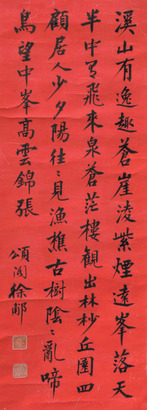 溪山有逸趣蒼崖凌紫煙遠峯落天
半中有飛來泉蒼茫樓觀出林杪丘園四
顧居人少夕陽往〻見漁樵古樹陰〻亂啼
鳥望中峯高雲錦張
頌閣徐郙